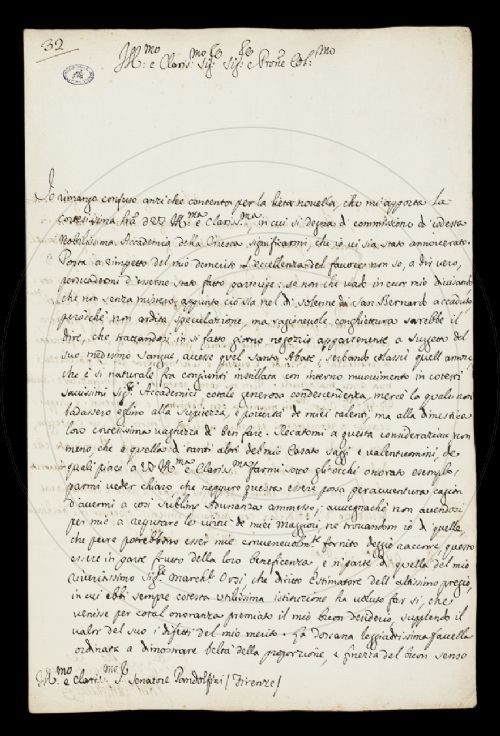 32
Ill.mo e Claris.mo Sig.re Sig.re e Prone Col.mo
Io rimango confuso anzi che contento per la lieta novella, che mi apporta la
cortesissima di VS Ill.ma e Claris.ma, in cui si degna di commissione di codesta
Nobilissima Accademia della Crusca significarmi, che io vi sia stato annoverato.
Posta a rimpetto del mio demerito l'eccellenza del favore non so, a dir vero,
persuadermi d'esserne stato fatto partecipe: se non che vado in cuor mio divisando
che non senza mistero appunto ciò sia nel dì solenne di San Bernardo accaduto
perocché non ardita speculazione, ma ragionevole conghiettura sarebbe il
dire, che trattandosi in sì fatto giorno negozio appartenente a Suggetto del
suo medesimo Sangue, avesse quel Santo Abate, serbando eziandio quell'amore
che è sì naturale fra congiunti instillata con interno movimento in cotesti
Saviissimi Sig.ri Accademici cotale generosa condescendenza, mercè la quale non
badassero eglino alla di miei talenti, ma alla dimestica
loro cortesissima vaghezza di ben fare. Recatomi a questa considerazione non
meno, che a quella di tanti altri del mio Casato saggi e valentuomini, de'
quali piace a VS Ill.ma e Claris.ma farmi sotto gli occhi onorato esemplo,
parmi veder chiaro che neppure questa essere possa peravventura cagion
d'avermi a così sublime Adunanza ammesso; avvegnaché non avendosi
per me a acquistare le virtù de' miei Maggiori, ne trovandomi io di quelle,
che pure potrebbero esser mie convenevolm.te fornito deggio accorre questo
essere in parte frutto della loro beneficenza, e in parte di quella del mio
Riveritissimo Sig.r March.e Orsi, che diritto Estimatore dell'altissimo pregio,
in cui ebbi sempre cotesta Utilissima Istituzione ha voluto far sì, che
venisse per cotal onoranza premiato il mio buon desiderio, supplendo il
valor del suo i difetti del mio merito. Fa donsana leggiadrissima favella
ordinata a dimostrare beltà della proporzione, e finezza del buon senso
Ill.mo e Claris.mo S. Senatore Pandolfini / Firenze /